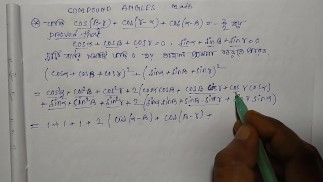 COMPOUND ANGLES math
যদি cos(β-γ) + cos(γ-α) + cos(α-β) = - 3/2 হয়
proved that
cosα + cosβ + cosγ = 0, sinα + sinβ + sinγ = 0
(cosα + cosβ + cosγ)² + (sinα + sinβ + sinγ)²
= cos²α + cos²β + cos²γ + 2(cosα cosβ + cosβ cosγ + cosγ cosα)
+ sin²α + sin²β + sin²γ + 2(sinα sinβ + sinβ sinγ + sinγ sinα)
= 1 + 1 + 1 + 2 { cos(α-β) + cos(β-γ) +